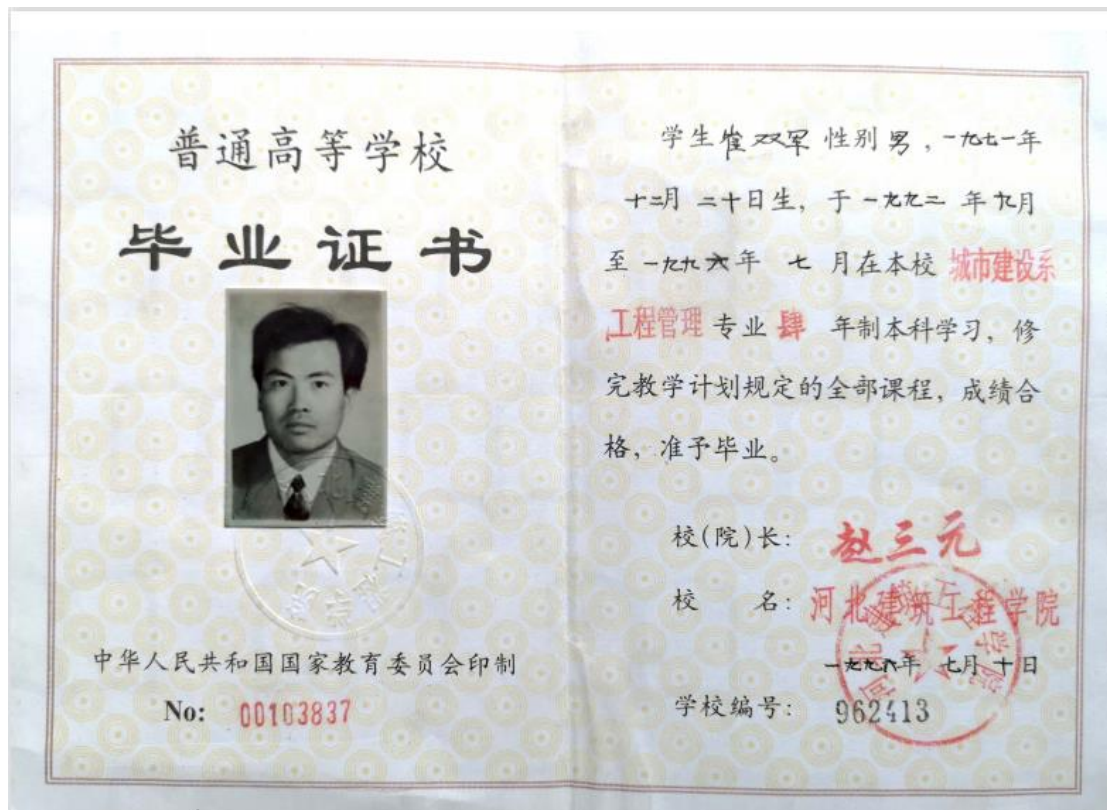 普通高等学校
毕业证书
中华人民共和国国家教育委员会印制
No: 00103837
学生崔双军 性别男，一九七一年
十二月二十日生，于一九九二年九月
至一九九六年 七 月在本校 城市建设系
工程管理 专业 肆 年制本科学习，修
完教学计划规定的全部课程，成绩合
格，准予毕业。
校(院)长：赵三元
校 名：河北建筑工程学院
一九九六年 七月十日
学校编号：962413
河北建筑工程学院